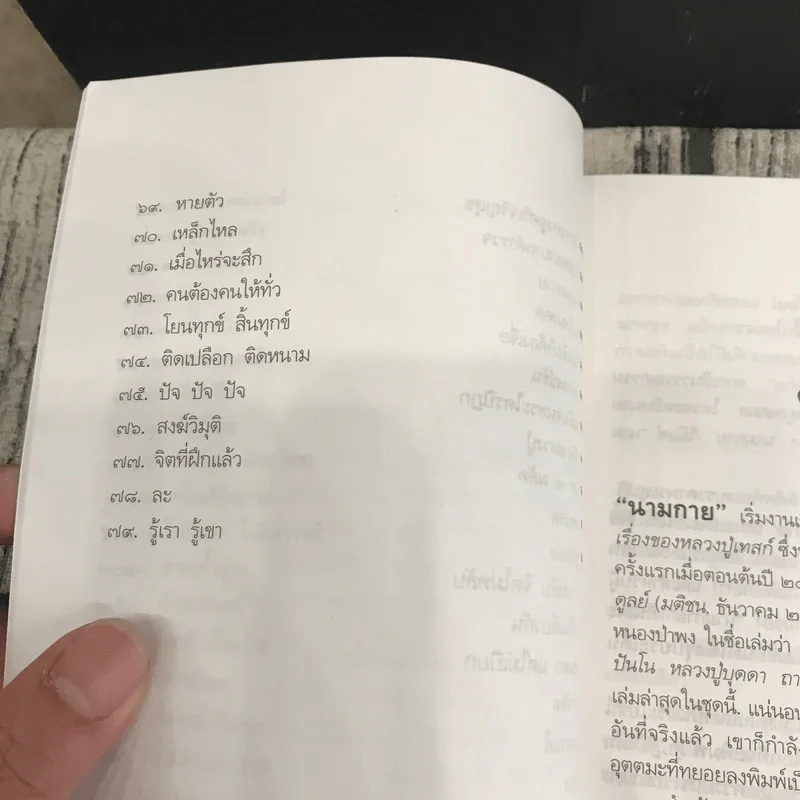 ๖๙. หายตัว
๗๐. เหล็กไหล
๗๑. เมื่อไหร่จะสึก
๗๒. คนต้องคนให้ทั่ว
๗๓. โยนทุกข์ สิ้นทุกข์
๗๔. ติดเปลือก ติดหนาม
๗๕. ปัจ ปัจ ปัจ
๗๖. สงฆ์วิมุติ
๗๗. จิตที่ฝึกแล้ว
๗๘. ละ
๗๙. รู้เรา รู้เขา
“นามกาย” เริ่มงาน
เรื่องของหลวงปู่เทสก์ ซึ่ง
ครั้งแรกเมื่อตอนต้นปี ๒๐
ดูลย์ (มติชน, ธันวาคม ๒
หนองป่าพง ในชื่อเล่มว่า
ปันโน หลวงปู่บุดดา ถา
เล่มล่าสุดในชุดนี้. แน่นอน
อันที่จริงแล้ว เขาก็กำลัง
อุตตมะที่ทยอยลงพิมพ์เป็